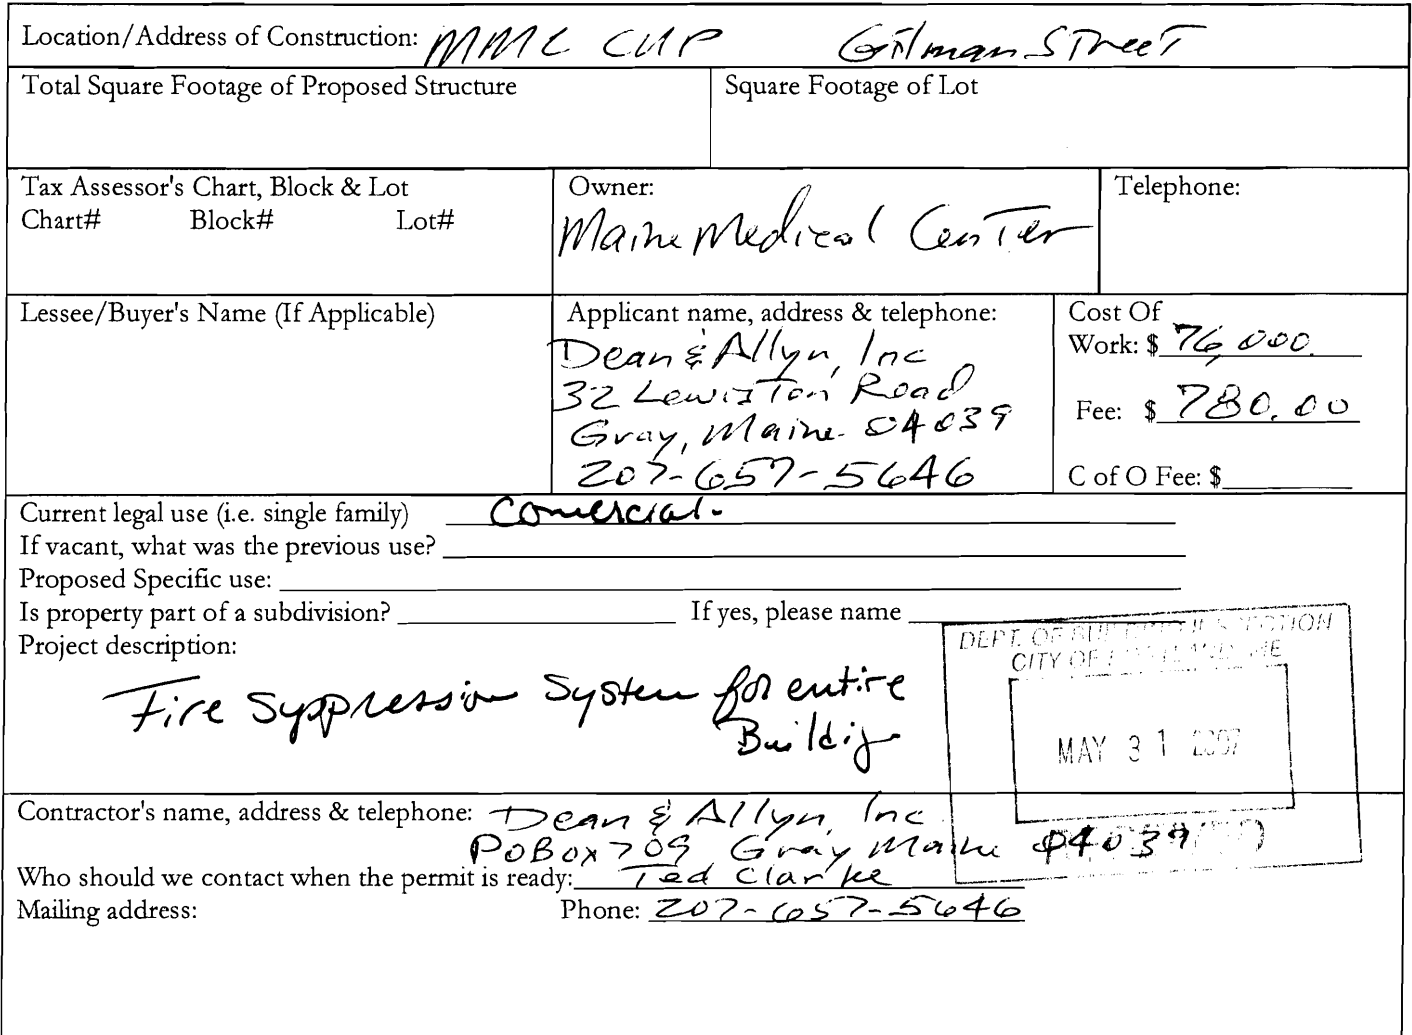 Location/Address of Construction: MMC CUP Gilman Street
Total Square Footage of Proposed Structure
Square Footage of Lot
Tax Assessor's Chart, Block & Lot
Chart# Block# Lot#
Owner:
Maine Medical Center
Telephone:
Lessee/Buyer's Name (If Applicable)
Applicant name, address & telephone:
Dean & Allyn, Inc
32 Lewiston Road
Gray, Maine 04039
207-657-5646
Cost Of
Work: $ 76,000.
Fee: $ 780.00
C of O Fee: $
Current legal use (i.e. single family) Comercial.
If vacant, what was the previous use?
Proposed Specific use:
Is property part of a subdivision? If yes, please name
Project description:
Fire Syppression System for entire
Building
DEPT. OF BUILDING INSPECTION
CITY OF PORTLAND, ME
MAY 31 2007
Contractor's name, address & telephone: Dean & Allyn, Inc
PO Box 709 Gray Maine 04039
Who should we contact when the permit is ready: Ted Clarke
Mailing address: Phone: 207-657-5646